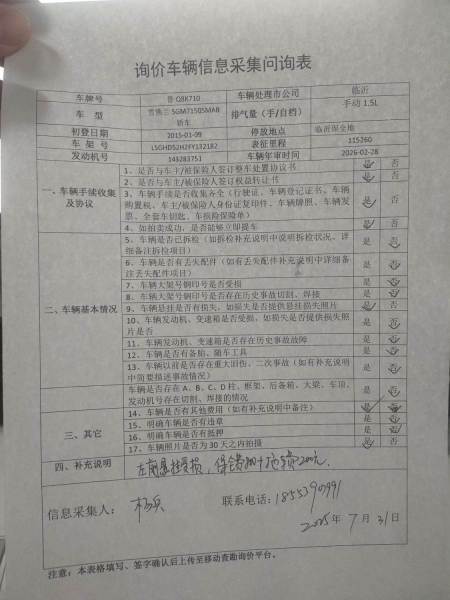 询价车辆信息采集问询表
车牌号 鲁 Q8K710 车辆处理市公司 临沂
车 型 雪佛兰 SGM71505MAB轿车 排气量（手/自档） 手动 1.5L
初登日期 2015-01-09 停放地点 临沂保全地
车 架 号 LSGHD52H2FY132182 表征里程 115260
发动机号 143283751 车辆年审时间 2026-02-28
一、车辆手续收集及协议
1、是否与车主/被保险人签订整车处置协议书 是 否
2、是否与车主/被保险人签订权益转让书 是 否
3、车辆手续是否收集齐全（行驶证、车辆登记证书、车辆
购置税、车主/被保险人身份证复印件、车辆牌照、车辆发
票、全套车钥匙、车损险保险单） 是 否
4、如拍卖成功，是否能够立即提车 是 否
二、车辆基本情况
5、车辆是否已拆检（如拆检补充说明中说明拆检状况、详
细备注拆检项目） 是 否
6、车辆是否有丢失配件（如有丢失配件补充说明中详细备
注丢失配件项目） 是 否
7、车辆大架号钢印号是否受损 是 否
8、车辆大架号钢印号是否存在历史事故切割、焊接 是 否
9、车辆悬挂是否有损失，如损失是否提供悬挂损失照片 是 否
10、车辆发动机、变速箱是否受损，如损失是否提供损失照
片是否 是 否
11、车辆发动机、变速箱是否存在历史事故故障 是 否
12、车辆是否有备胎、随车工具 是 否
13、车辆以前是否存在重大旧伤、二次事故（如有补充说明
中简要描述事故情况） 是 否
车辆是否存在 A、B、C、D 柱、框架、后备箱、大梁、车顶、
发动机号存在切割、焊接的情况 是 否
三、其它
14、车辆是否有其他费用（如有补充说明中备注） 是 否
15、明确车辆是否有违章 是 否
16、明确车辆是否有抵押 是 否
17、车辆照片是否为 30 天之内拍摄 是 否
四、补充说明 左前悬挂受损，
信息采集人： 杨兵 联系电话：
2025年 7 月 31 日
注意：本表格填写、签字确认后上传至移动查勘询价平台。